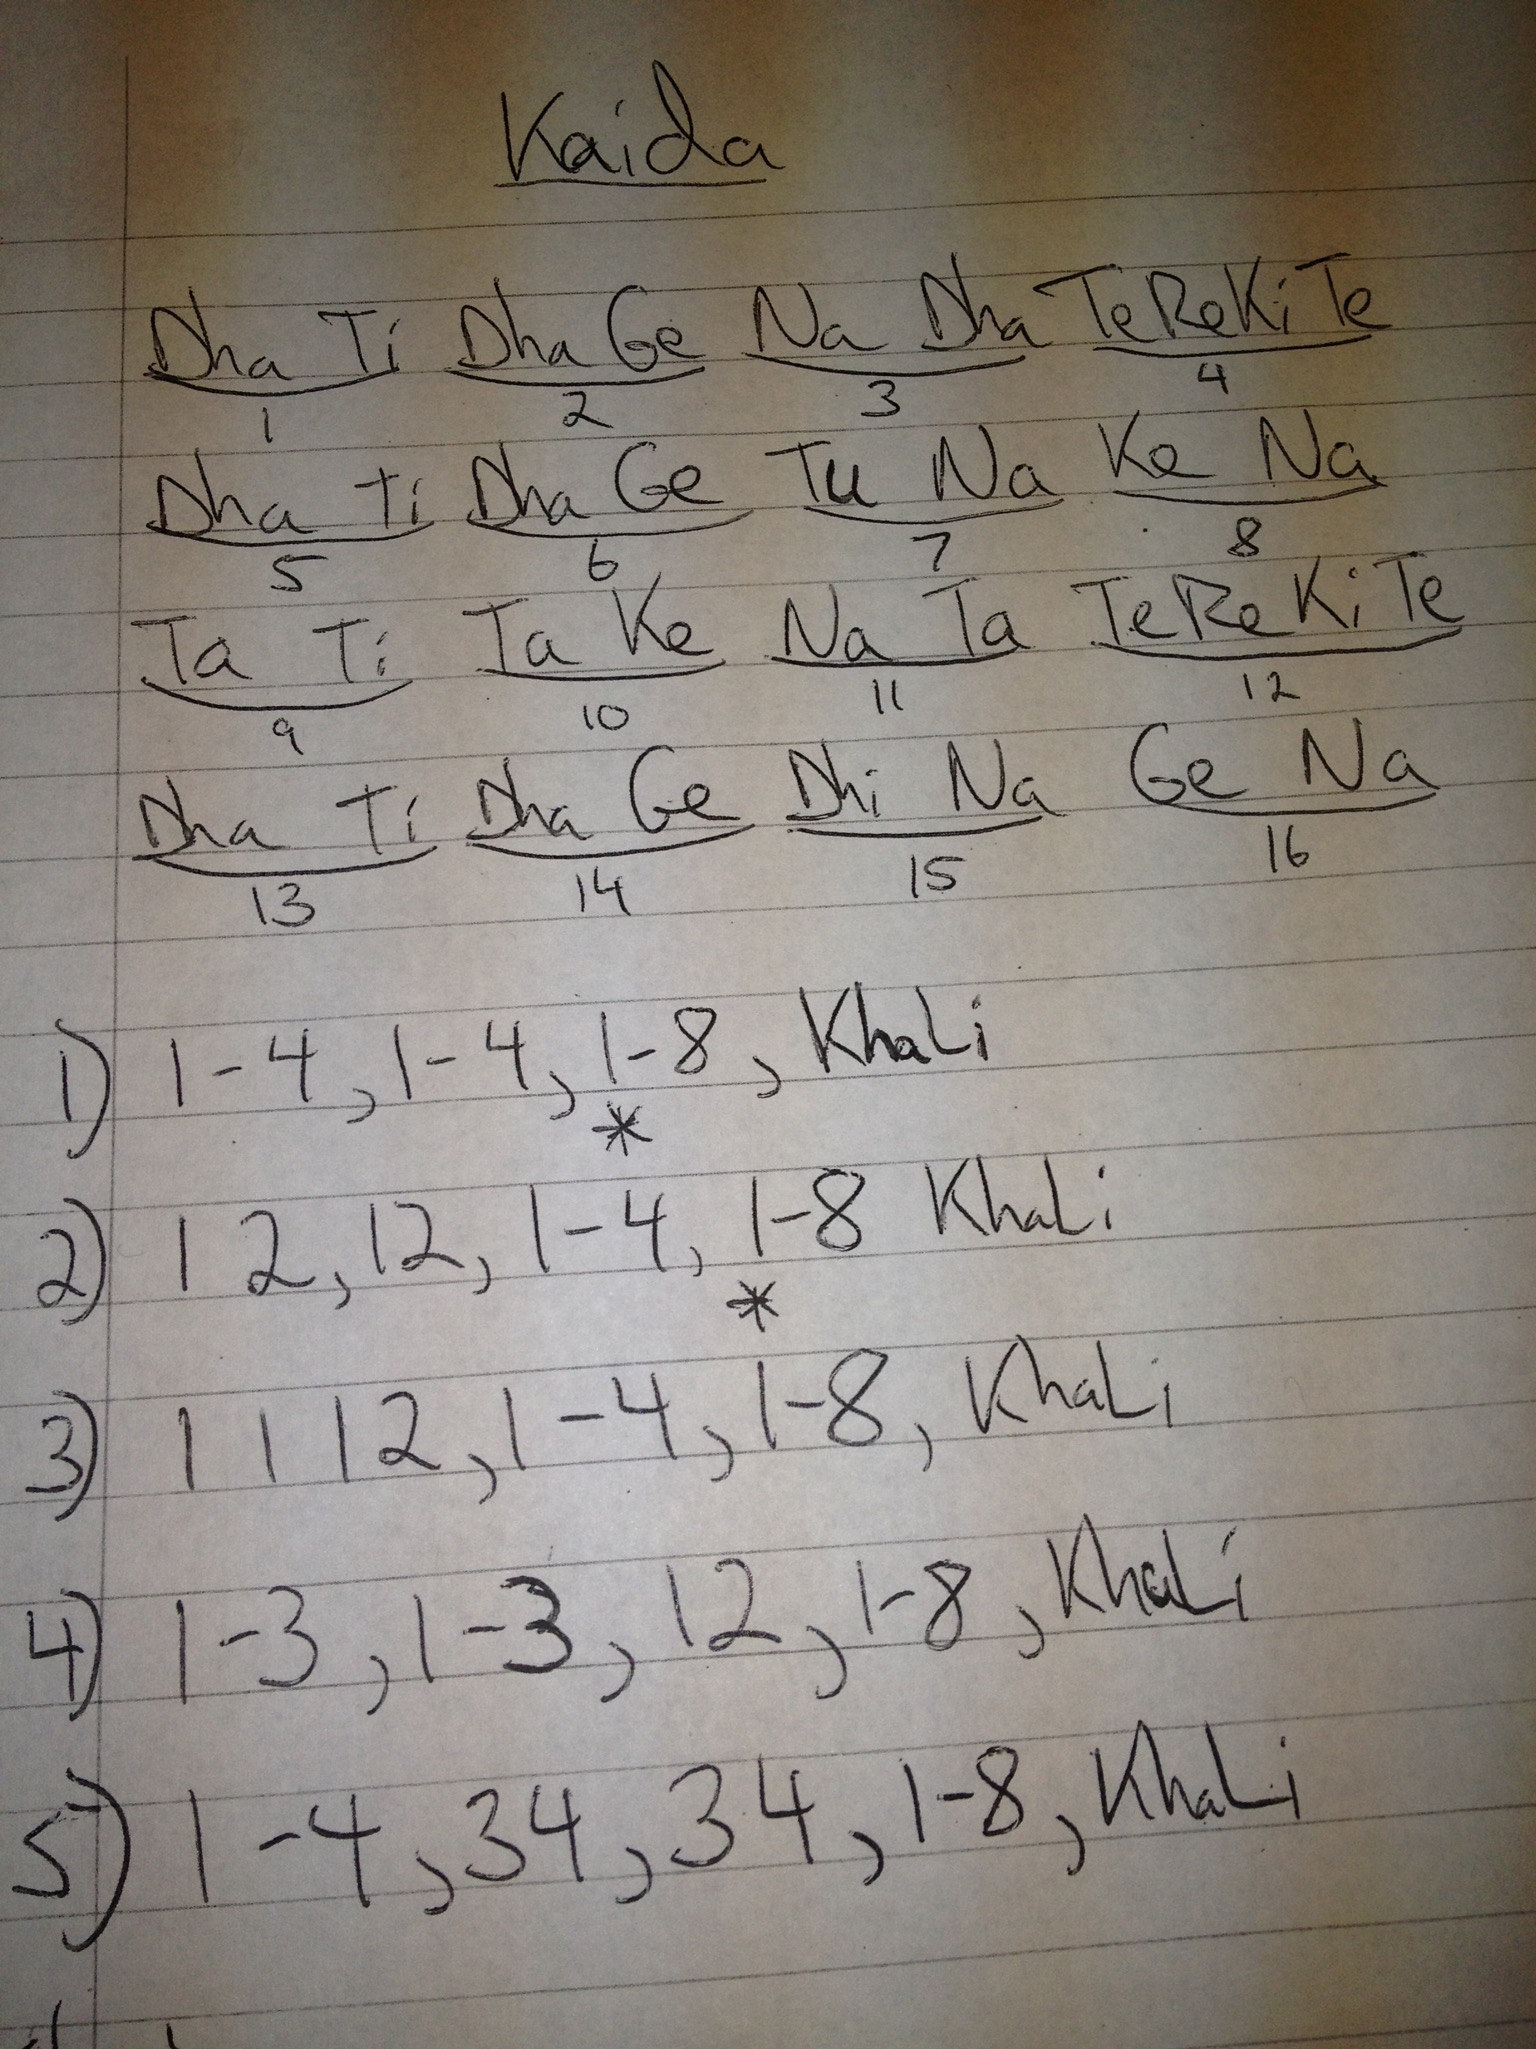 Kaida
Dha Ti Dha Ge Na Dha TeReKiTe
1 2 3 4
Dha Ti Dha Ge Tu Na Ke Na
5 6 7 8
Ta Ti Ta Ke Na Ta TeReKiTe
9 10 11 12
Dha Ti Dha Ge Dhi Na Ge Na
13 14 15 16
1) 1-4, 1-4, 1-8, KhaLi
*
2) 12, 12, 1-4, 1-8 KhaLi
*
3) 1 1 12, 1-4, 1-8, KhaLi
4) 1-3, 1-3, 12, 1-8, KhaLi
5) 1-4, 34, 34, 1-8, KhaLi